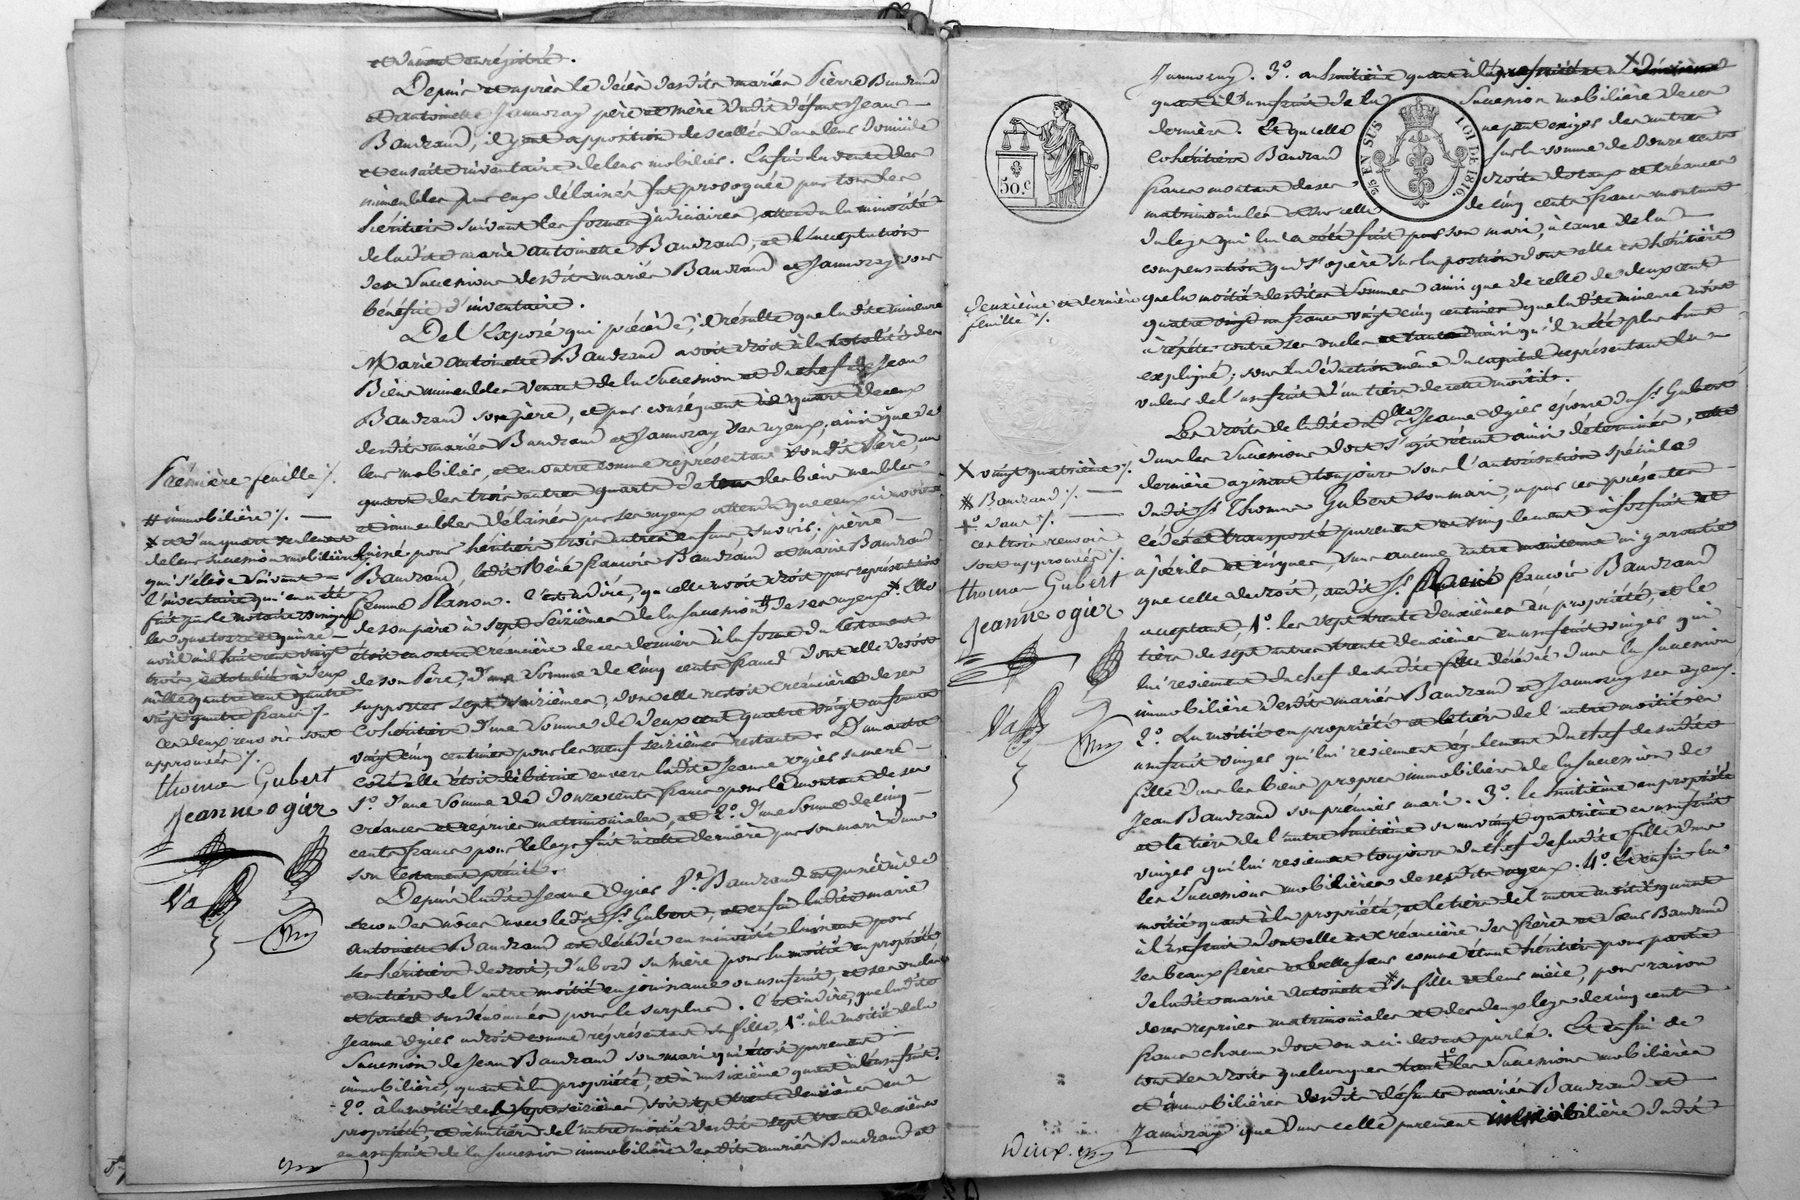 et dûment enrégistré.
Depuis et après le décès desdits mariés Pierre Baudrand
et antoinette Jannoray père et mère dudit défunt Jean
Baudrand, il y eut apposition de scellés dans leur domicile
et ensuite inventaire de leur mobilier. Enfin la vente des
immeubles par eux délaissés fut provoquée par tous les
héritiers suivant les formes judiciaires, attendu la minorité
de ladite marie antoinette Baudrand, et l'acceptation
des successions desdits mariés Baudrand et Jannoray sous
bénéfice d'inventaire.
De l'Exposé qui précède, il résulte que ladite mineure
Marie antoinette Baudrand avoit droit à la totalité des
Biens immeubles venant de la succession et du chef de Jean
Baudrand son père, et par conséquent au quart de ceux
desdits mariés Baudrand et Jannoray ses ayeux, ainsi que de
leur mobilier, et en outre comme représentant sondit Père, au
quart des trois autres quarts de tous les biens meubles
et immeubles délaissés par ses ayeux attendu que ceux-ci avoient
laissé pour héritiers trois autres enfans, savoir: pierre
Baudrand, ledit Réné françois Baudrand et marie Baudrand
femme Planon. C'est-à-dire, qu'elle avoit droit par représentation
de son père à sept seizièmes de la succession # de ses ayeux × Elle
étoit en outre créancière de ces derniers à la forme du testament
de son Père, d'une somme de cinq cents francs dont elle devoit
supporter sept seizièmes, donc elle restoit créancière de ses
Cohéritiers d'une somme de deux cent quatre vingt un francs
vingt cinq centimes pour les neuf seizièmes restants. D'un autre
côté elle étoit débitrice envers ladite Jeanne ogier sa mère
1º. d'une somme de douze cents francs pour le montant de ses
créances et reprises matrimoniales, et 2º. d'une somme de cinq
cents francs pour le legs fait à cette dernière par son mari dans
son testament précité.
Depuis ladite Jeanne Ogier Ve. Baudrand a passé de
secondes nôces avec ledit Sr. Gubert, et enfin ladite marie
antoinette Baudrand est décédée en minorité laissant pour
ses héritiers de droit, d'abord sa mère pour la moitié en propriété
et un tiers de l'autre moitié en jouissance ou usufruit, et ses oncles
et tante susdénommés pour le surplus. C'est-à-dire, que ladite
Jeanne Ogier a droit comme représentant sa fille, 1º. à la moitié de la
succession de Jean Baudrand son mari qui étoit purement
immobilière, quant à la propriété, et à un sixième quant à l'usufruit.
2º. à la moitié des sept seizièmes, soit sept trente deuxièmes en
propriété, et à un tiers de l'autre moitié desdits sept trente deuxièmes
en usufruit de la succession immobilière desdits mariés Baudrand et
Première feuille ./.
# immobilière ./.
× et d'un quart seulement
de leur succession mobilière
qui s'élève suivant
l'inventaire qui en a été
fait par le notaire soussigné
les quatorze et quinze
avril mil huit cent vingt
trois, en totalité à deux
mille quatre cent quatre
vingt quatre francs ./.
Ces deux renvois sont
approuvés ./.
thomas Gubert
Jeanne ogier
Jannoray. 3º. au huitième quant à la propriété et au × deuxième
quant à l'usufruit de la succession mobilière de ces
derniers. Et qu'elle ne peut exiger des autres
cohéritiers Baudrand sur la somme de douze cents
francs montant de ses droits dotaux et créances
matrimoniales et sur celle de cinq cents francs montant
du legs qui lui a été fait par son mari, à cause de la
compensation qui s'opère sur la portion dont elle est héritière
que la moitié desdites sommes ainsi que de celle de deux cent
quatre vingt un francs vingt cinq centimes que ladite mineure avoit
à répéter contre ses oncles et tante ainsi qu'il a été plus haut
expliqué; sous la déduction même du capital représentant la
valeur de l'usufruit d'un tiers de cette moitié.
Les droits de ladite De. Jeanne Ogier épouse du Sr. Gubert
dans les successions dont s'agit étant ainsi déterminés, cette
dernière agissant toujours sous l'autorisation spéciale
dudit Sr. Thomas Gubert son mari, a par ces présentes
cédé et transporté purement et simplement à forfait et
à périls et risques, sans aucune autre maintenue ni garantie
que celle de droit, audit Sr. Réné françois Baudrand
acceptant, 1º. les sept trente deuxièmes en propriété, et le
tiers de sept autres trente deuxièmes en usufruit viager qui
lui reviennent du chef de sadite fille décédée dans la succession
immobilière desdits mariés Baudrand et Jannoray ses ayeux.
2º. La moitié en propriété et le tiers de l'autre moitié en
usufruit viager qui lui reviennent également du chef de sadite
fille dans les biens propres immobiliers de la succession de
Jean Baudrand son premier mari. 3º. le huitième en propriété
et le tiers de l'autre huitième ou un vingt quatrième en usufruit
viager qui lui reviennent toujours du chef de sadite fille dans
les successions mobilières de sesdits ayeux. 4º. Et enfin la
moitié quant à la propriété, et le tiers de l'autre moitié quant
à l'usufruit dont elle est créancière des frères et sœur Baudrand
ses beaux frères et belle sœur comme étant héritiers pour partie
de ladite marie antoinette # sa fille et leur nièce, pour raison
de ses reprises matrimoniales et des deux legs de cinq cents
francs chacun dont on a ci-devant parlé. Et enfin de
tous ses droits quelconques tant +º les successions mobilières
et immobilières desdits défunts mariés Baudrand et
Jannoray que dans celle purement immobilière dudit
50.c
5/6 EN SUS LOI DE 1816.
deuxième et dernière
feuille ./.
× vingt quatrième ./.
# Baudrand ./.
+º dans ./.
ces trois renvois
sont approuvés ./.
thomas Gubert
Jeanne ogier